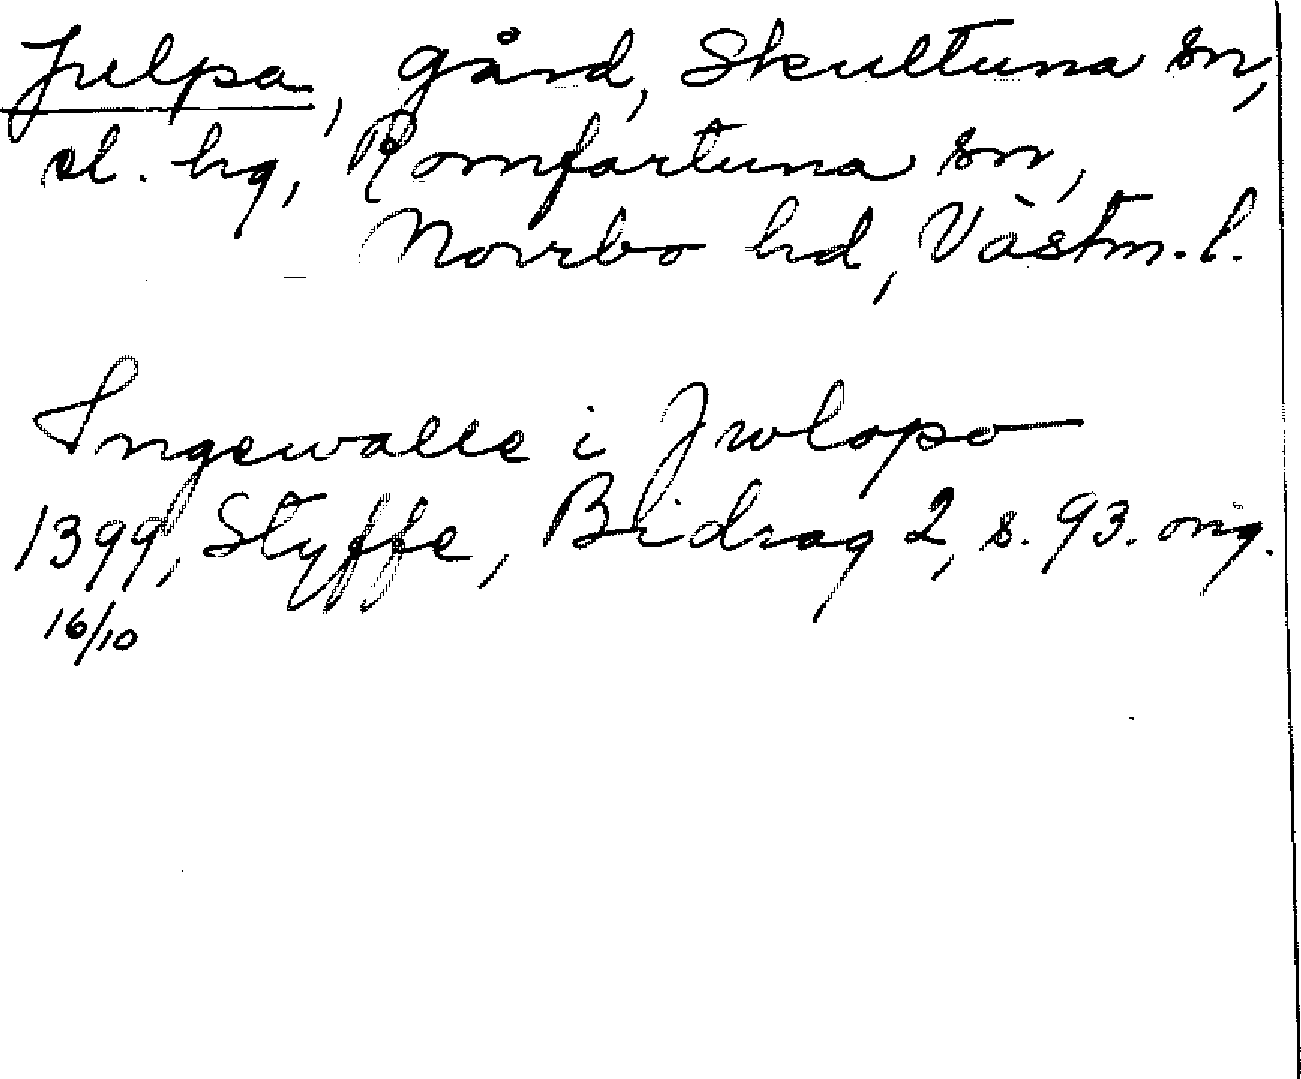 Julpa, gård, Skultuna sn,
sl. hg, Romfartuna sn,
Norrbo hd, Västm. l.
Ingewalle i Jwlapo
1399, Styffe, Bidrag 2, s. 93. orig.
16/10